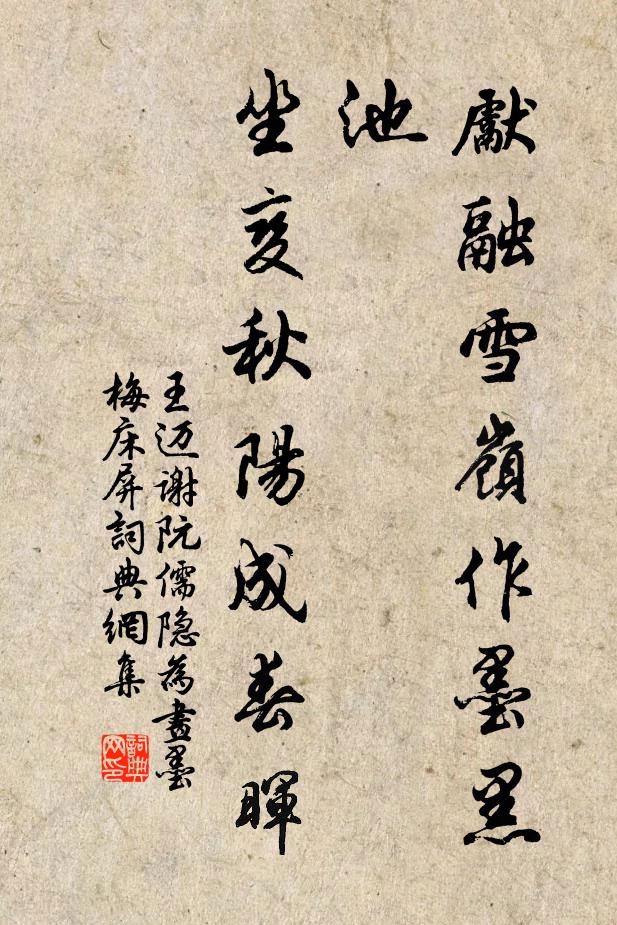 獻融雪嶺作墨黑
池
坐变秋陽成春暉
王迈谢阮儒隐為畫墨
梅床屏詞典網集
詞典
网印